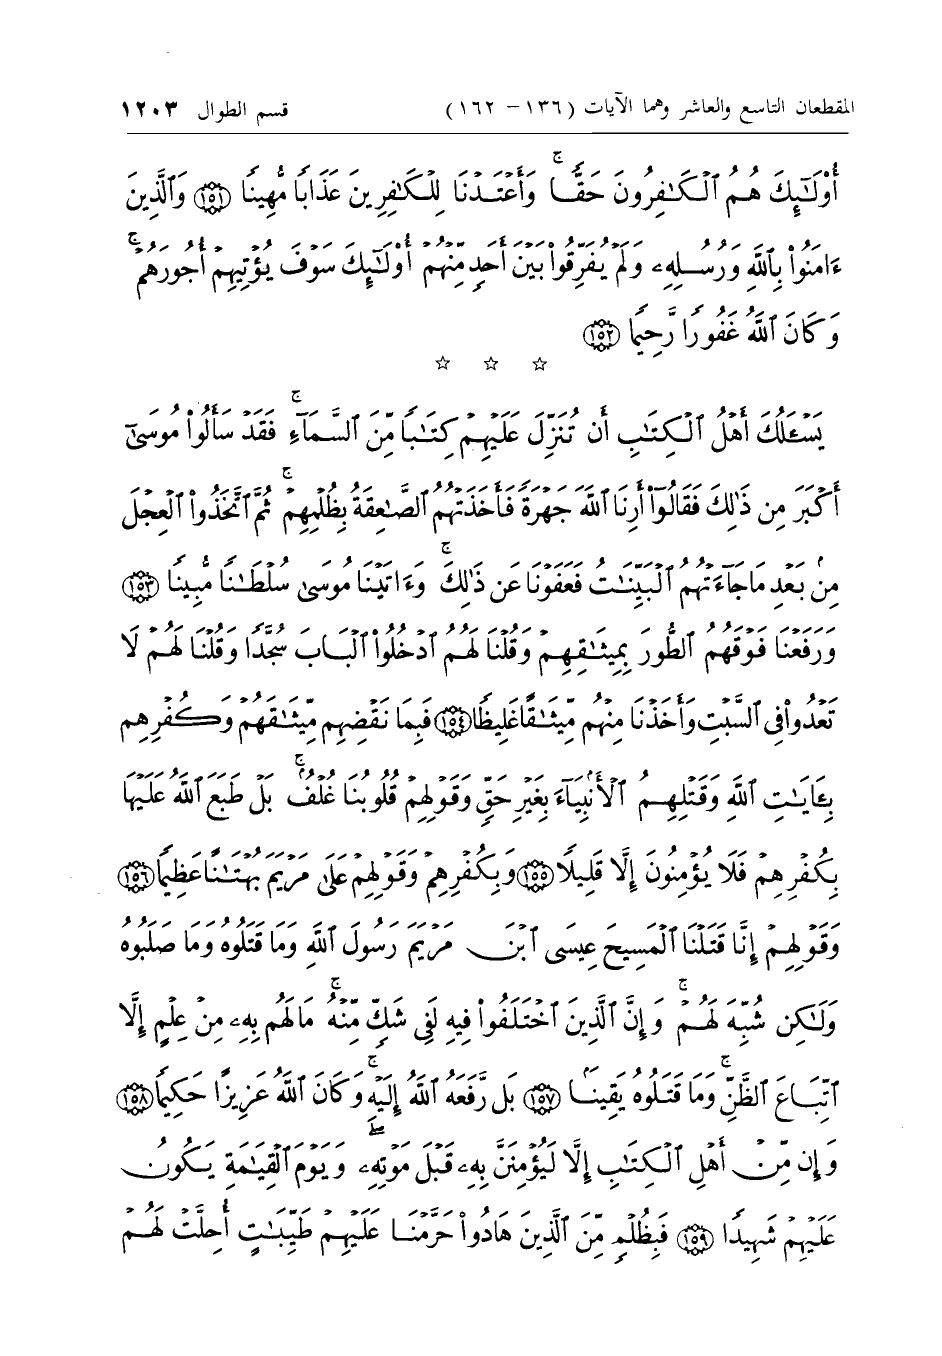 المقطعان التاسع والعاشر وهما الآيات (١٣٦ - ١٦٢) قسم الطوال ١٢٠٣
أُوْلَٰٓئِكَ هُمُ ٱلْكَٰفِرُونَ حَقًّا ۚ وَأَعْتَدْنَا لِلْكَٰفِرِينَ عَذَابًا مُّهِينًا ١٥١ وَٱلَّذِينَ
ءَامَنُوا۟ بِٱللَّهِ وَرُسُلِهِۦ وَلَمْ يُفَرِّقُوا۟ بَيْنَ أَحَدٍ مِّنْهُمْ أُوْلَٰٓئِكَ سَوْفَ يُؤْتِيهِمْ أُجُورَهُمْ ۚ
وَكَانَ ٱللَّهُ غَفُورًا رَّحِيمًا ١٥٢
☆ ☆ ☆
يَسْـَٔلُكَ أَهْلُ ٱلْكِتَٰبِ أَن تُنَزِّلَ عَلَيْهِمْ كِتَٰبًا مِّنَ ٱلسَّمَآءِ ۚ فَقَدْ سَأَلُوا۟ مُوسَىٰٓ
أَكْبَرَ مِن ذَٰلِكَ فَقَالُوٓا۟ أَرِنَا ٱللَّهَ جَهْرَةً فَأَخَذَتْهُمُ ٱلصَّٰعِقَةُ بِظُلْمِهِمْ ۚ ثُمَّ ٱتَّخَذُوا۟ ٱلْعِجْلَ
مِنۢ بَعْدِ مَا جَآءَتْهُمُ ٱلْبَيِّنَٰتُ فَعَفَوْنَا عَن ذَٰلِكَ ۚ وَءَاتَيْنَا مُوسَىٰ سُلْطَٰنًا مُّبِينًا ١٥٣
وَرَفَعْنَا فَوْقَهُمُ ٱلطُّورَ بِمِيثَٰقِهِمْ وَقُلْنَا لَهُمُ ٱدْخُلُوا۟ ٱلْبَابَ سُجَّدًا وَقُلْنَا لَهُمْ لَا
تَعْدُوا۟ فِى ٱلسَّبْتِ وَأَخَذْنَا مِنْهُم مِّيثَٰقًا غَلِيظًا ١٥٤ فَبِمَا نَقْضِهِم مِّيثَٰقَهُمْ وَكُفْرِهِم
بِـَٔايَٰتِ ٱللَّهِ وَقَتْلِهِمُ ٱلْأَنۢبِيَآءَ بِغَيْرِ حَقٍّ وَقَوْلِهِمْ قُلُوبُنَا غُلْفٌۢ ۚ بَلْ طَبَعَ ٱللَّهُ عَلَيْهَا
بِكُفْرِهِمْ فَلَا يُؤْمِنُونَ إِلَّا قَلِيلًا ١٥٥ وَبِكُفْرِهِمْ وَقَوْلِهِمْ عَلَىٰ مَرْيَمَ بُهْتَٰنًا عَظِيمًا ١٥٦
وَقَوْلِهِمْ إِنَّا قَتَلْنَا ٱلْمَسِيحَ عِيسَى ٱبْنَ مَرْيَمَ رَسُولَ ٱللَّهِ وَمَا قَتَلُوهُ وَمَا صَلَبُوهُ
وَلَٰكِن شُبِّهَ لَهُمْ ۚ وَإِنَّ ٱلَّذِينَ ٱخْتَلَفُوا۟ فِيهِ لَفِى شَكٍّ مِّنْهُ ۚ مَا لَهُم بِهِۦ مِنْ عِلْمٍ إِلَّا
ٱتِّبَاعَ ٱلظَّنِّ ۚ وَمَا قَتَلُوهُ يَقِينًۢا ١٥٧ بَل رَّفَعَهُ ٱللَّهُ إِلَيْهِ ۚ وَكَانَ ٱللَّهُ عَزِيزًا حَكِيمًا ١٥٨
وَإِن مِّنْ أَهْلِ ٱلْكِتَٰبِ إِلَّا لَيُؤْمِنَنَّ بِهِۦ قَبْلَ مَوْتِهِۦ ۖ وَيَوْمَ ٱلْقِيَٰمَةِ يَكُونُ
عَلَيْهِمْ شَهِيدًا ١٥٩ فَبِظُلْمٍ مِّنَ ٱلَّذِينَ هَادُوا۟ حَرَّمْنَا عَلَيْهِمْ طَيِّبَٰتٍ أُحِلَّتْ لَهُمْ